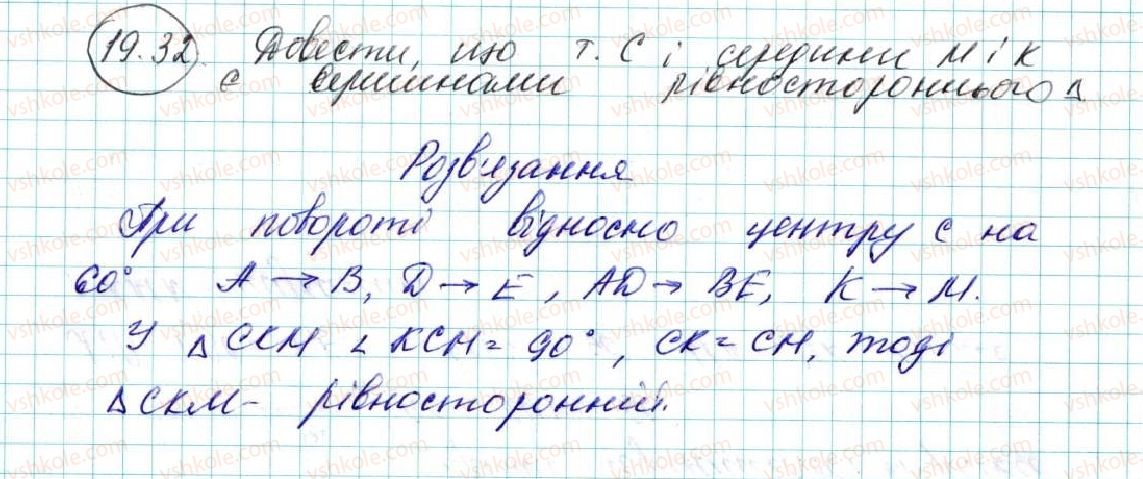 19.32. Довести, що т. C і середини M і K
є вершинами рівностороннього Δ
Розв'язання
При повороті відносно центру C на
60° A → B, D → E, AD → BE, K → M.
У Δ CKM ∠ KCM = 90°, CK = CM, тоді
Δ CKM - рівносторонній.